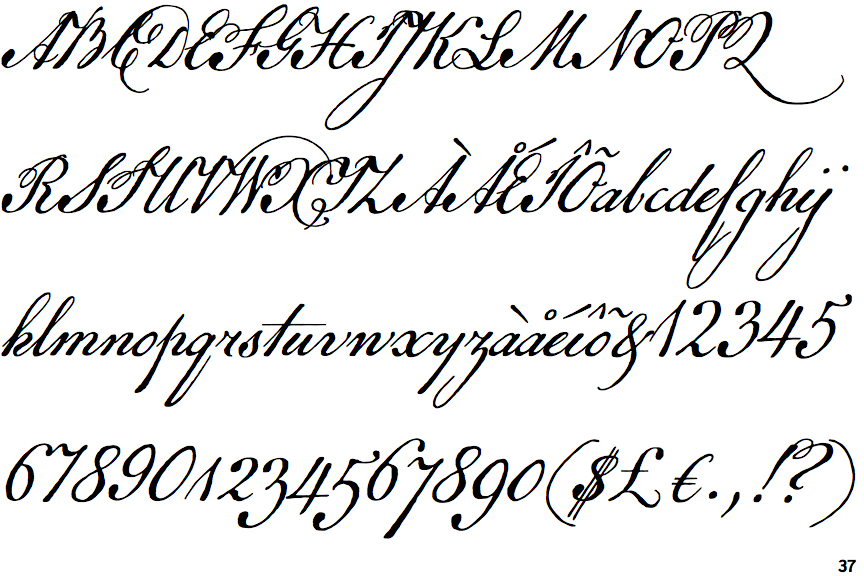 ABCDEFGHIJKLMNOPQ
RSTUVWXYZÀÅÉÎÕabcdefghij
klmnopqrstuvwxyzàåéîõ&12345
678901234567890($£€.,!?)
37